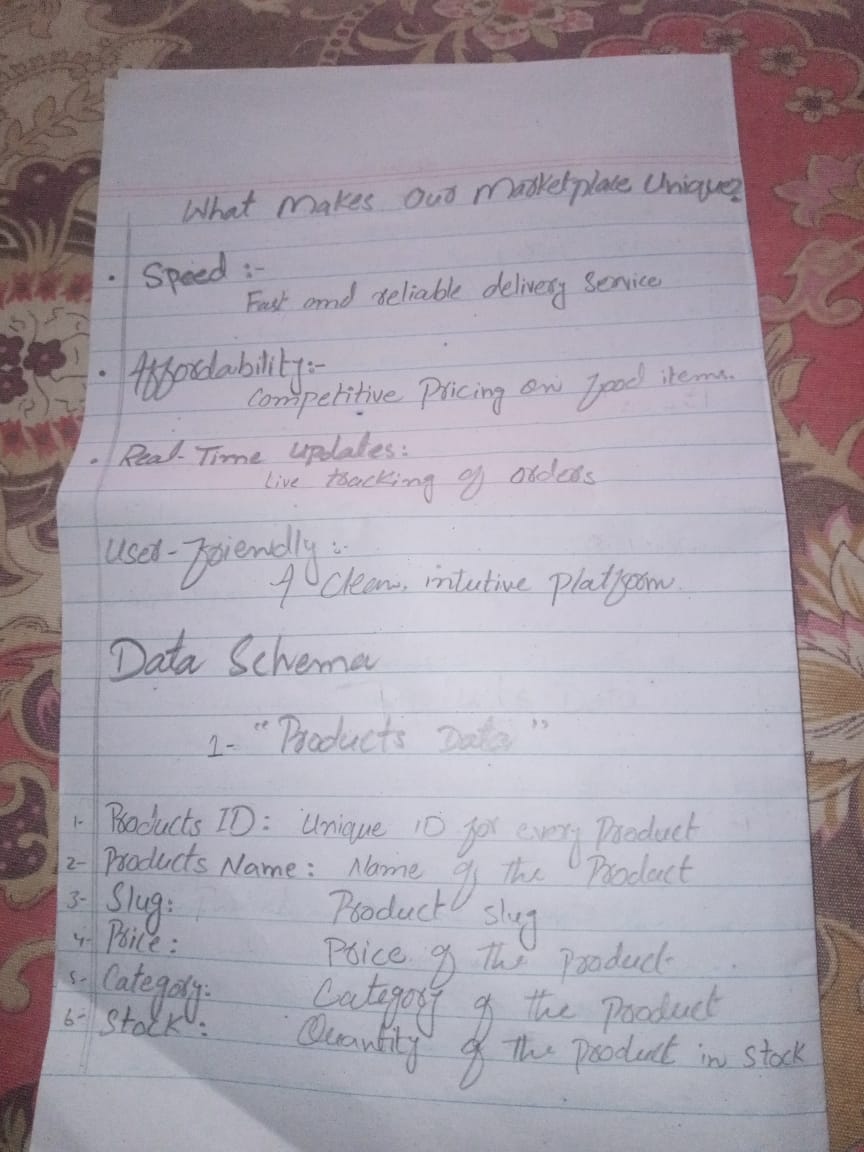 What Makes Our Marketplace Unique?
• Speed :-
Fast and reliable delivery Service
• Affordability:-
Competitive Pricing on food items.
• Real-Time updates:
Live tracking of orders
User-friendly :-
A Clean, intutive Platform.
Data Schema
1- "Products Data"
1- Products ID: Unique ID for every Product
2- Products Name: Name of the Product
3- Slug: Product slug
4- Price: Price of the product
5- Category: Category of the product
6- Stock: Quantity of the product in stock